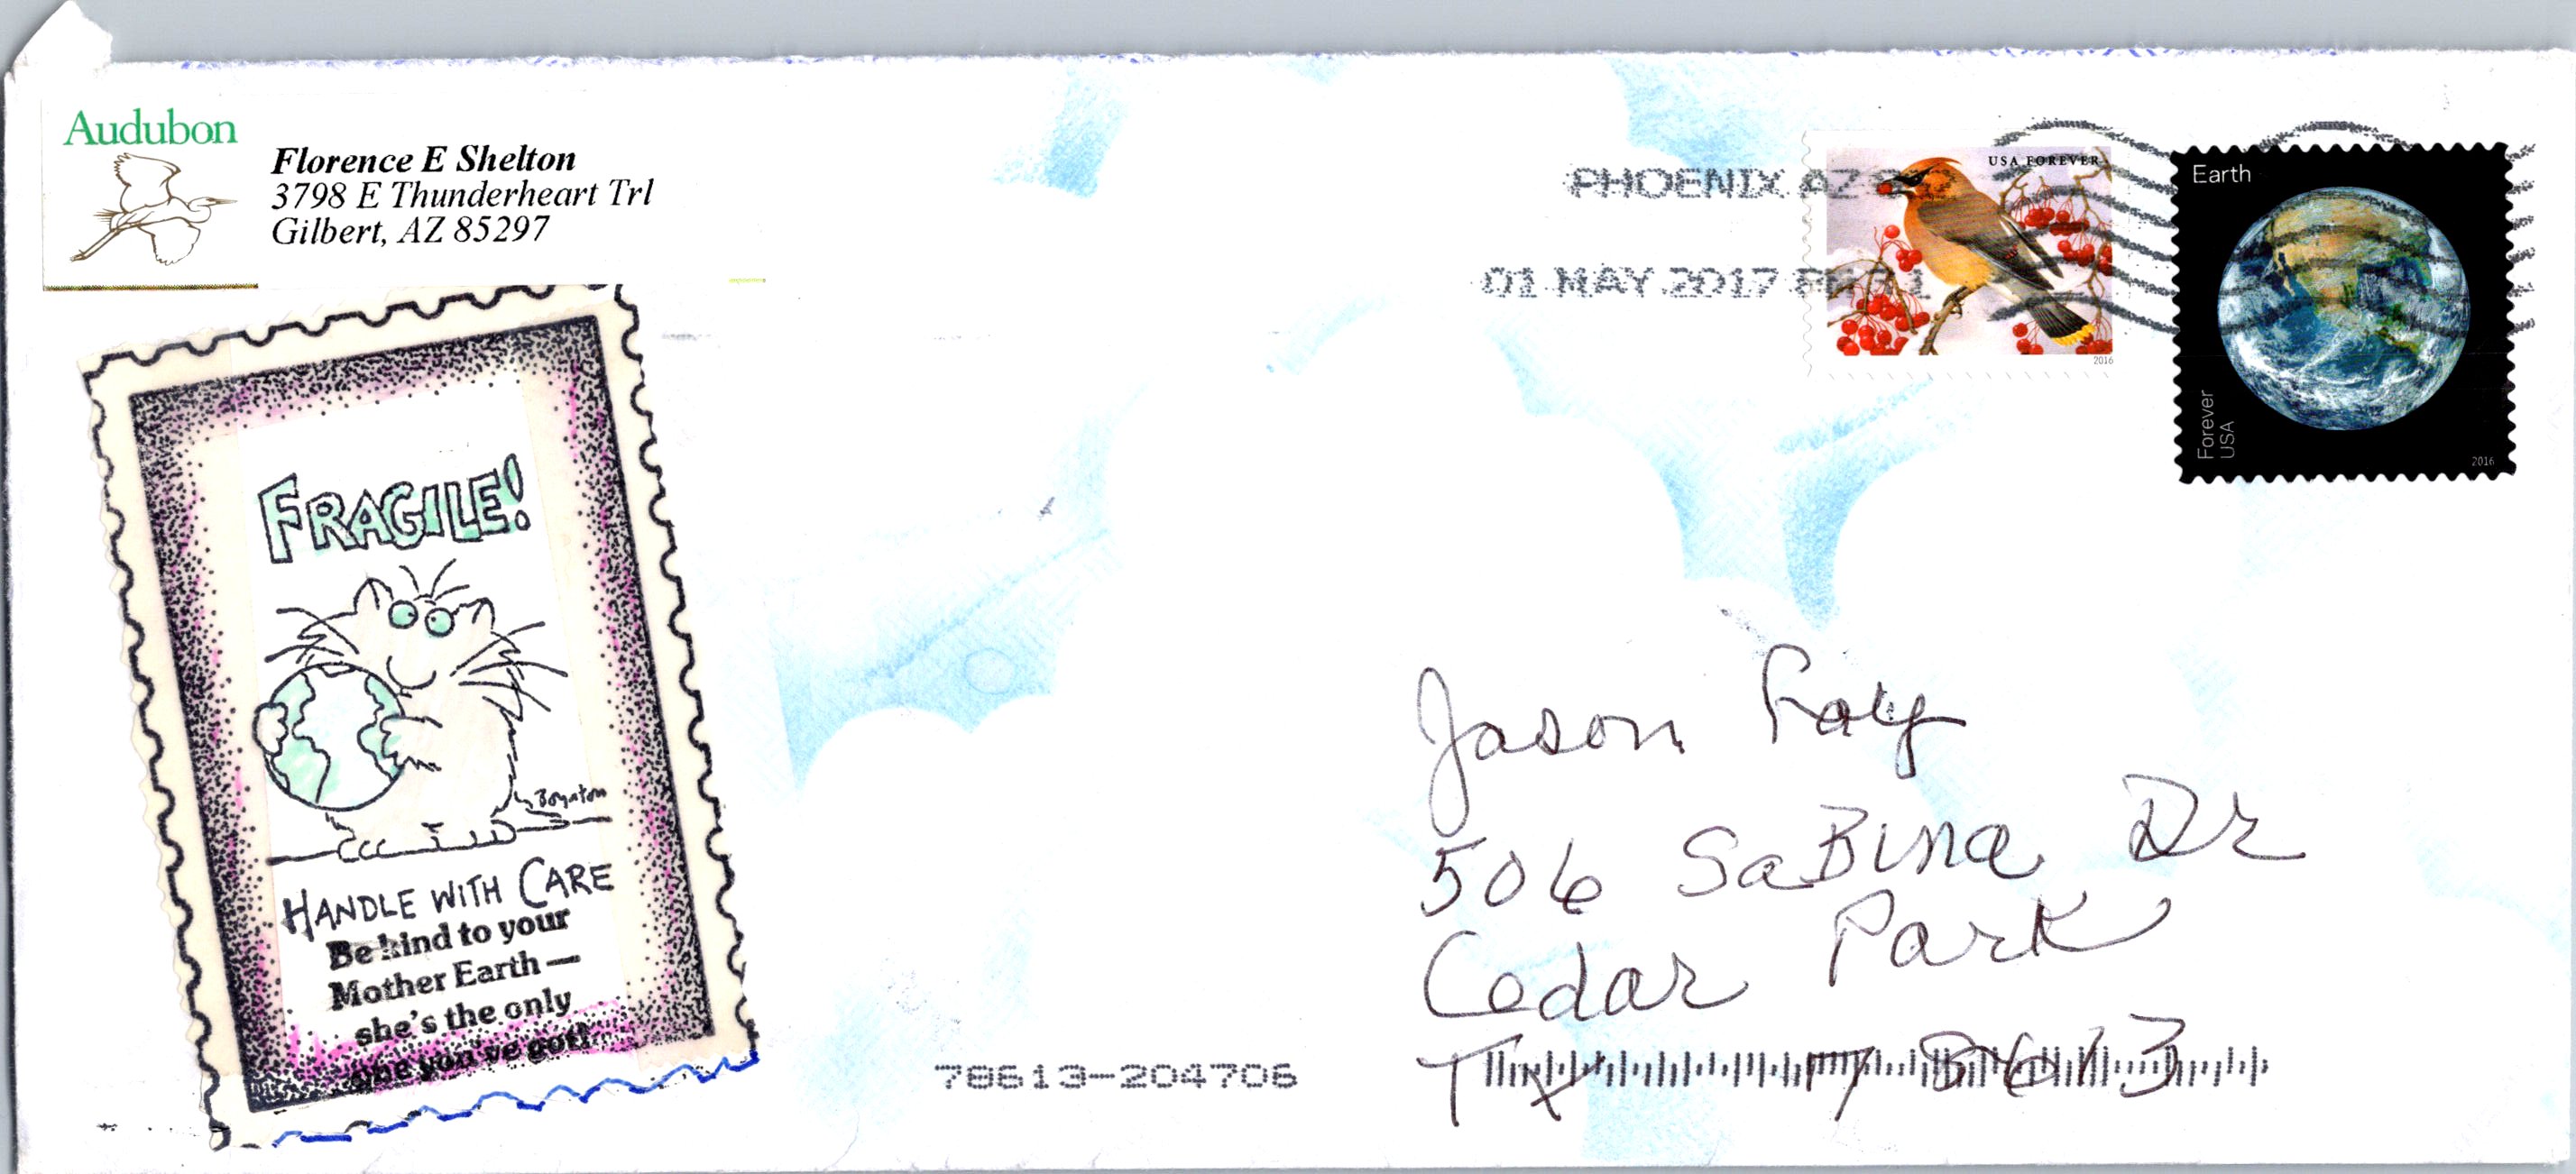 Audubon
Florence E Shelton
3798 E Thunderheart Trl
Gilbert, AZ 85297
PHOENIX AZ
01 MAY 2017
USA FOREVER
2016
Earth
Forever
USA
2016
FRAGILE!
Boynton
HANDLE WITH CARE
Be kind to your
Mother Earth —
she's the only
one you've got!
Jason
506 SaBina Dr
Cedar Park
Tx 78613
78613-204706